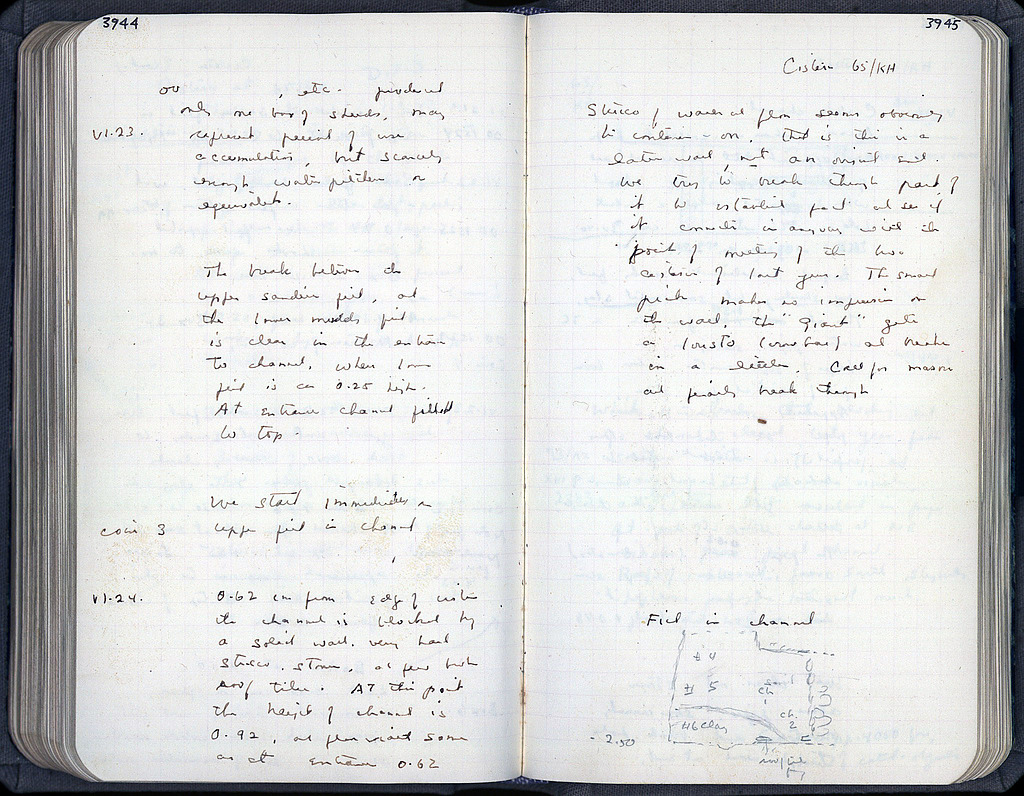 3944
etc. produced
only one box of sherds, may
VI.23. represent period of use
accumulation, but scarcely
enough water pitchers or
equivalents.
The break between the
upper sandier fill, and
the lower muddy fill
is clear in the entrance
to channel, where lower
fill is ca 0.25 high.
At entrance channel filled
to top.
We start immediately on
coin 3 upper fill in channel
VI.24. 0.62 cm from edge of cistern
the channel is blocked by
a solid wall, very hard
stucco, stone, a few broken
roof tiles. At this point
the height of channel is
0.92, at floor same
as at entrance 0.62
3945
Cistern 65/KH
Stucco of walls and floor seems obviously
to continue on, that is this is a
later wall, not an original end.
We try to break through part of
it to establish and see if
it connects in anyway with the
point of meeting of the two
cisterns of last year. The small
pick makes no impression on
the wall, the "Giant" gets
a (crowbar) and breaks
in a little. Call for mason
and finally break through
Fill in channel
# 4
# 5
ch.
#6 clay
ch.
2
-2.50